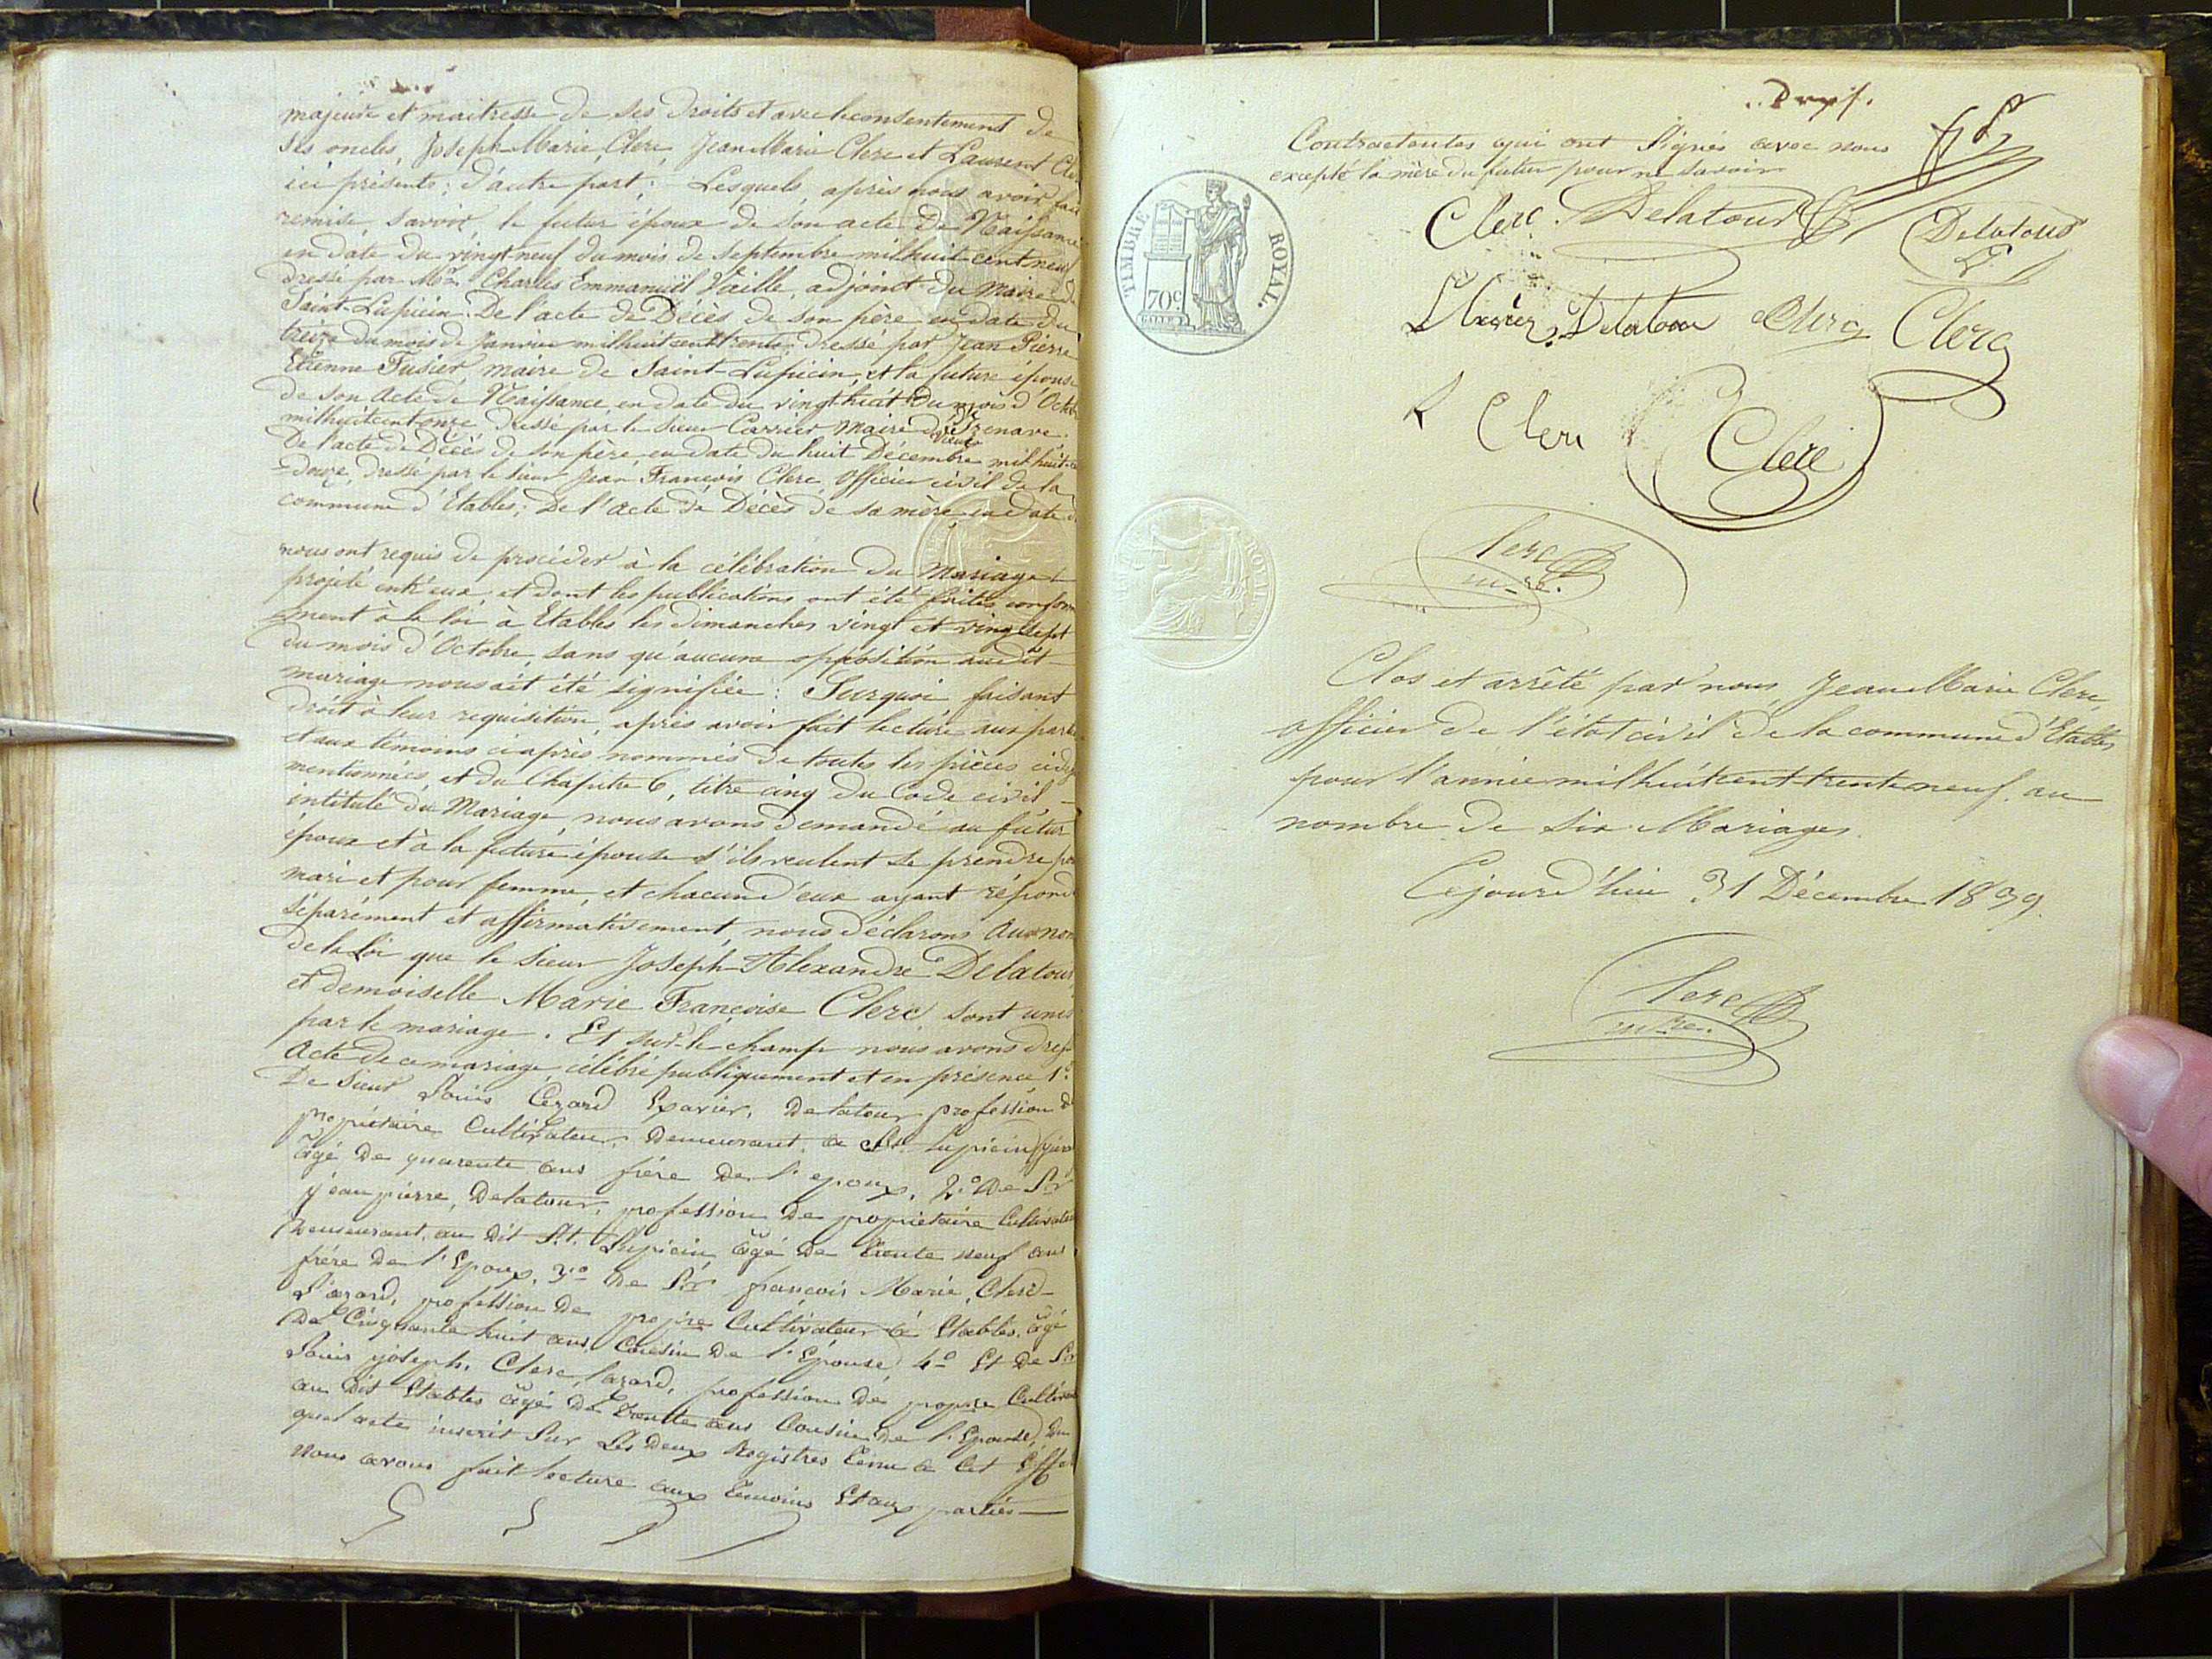 majeure et maitresse de ses droits et avec le consentement de
ses oncles, Joseph-Marie Clerc, Jean Marie Clerc et Laurent Cle
ici présents; d'autre part; Lesquels, après nous avoir fait
remise, savoir, le futur époux de son acte de Naissance
en date du vingt-neuf du mois de septembre milhuit-cent neuf
dressé par Mr Charles Emmanuël Vaille, adjoint du Maire de
Saint-Lupicin. De l'acte de Décès de son père en date du
treize du mois de Janvier milhuit cent trente, dressé par Jean Pierre
Etienne Fusier, maire de Saint-Lupicin, et la future épouse
de son Acte de Naissance en date du vingt huit du mois d'Octob
milhuitcent onze dressé par le sieur Carrier Maire de
De l'acte de Décès de son père, en date du huit Décembre milhuit-c
-douze, dressé par le sieur Jean François Clerc Officier civil de la
commune d'Etables; De l'acte de Décès de sa mère, en date d
nous ont requis de procéder à la célébration du Mariage
projeté entr'eux, et dont les publications ont été faites conform
-ment à la loi à Etables les dimanches vingt et vingt sept
du mois d'Octobre, sans qu'aucune opposition audit
mariage nous ait été signifiée: Surquoi, faisant
droit à leur requisition, après avoir fait lecture aux parti
et aux témoins ci après nommés de toutes les pièces cides
mentionnées, et du Chapitre 6, titre cinq du Code civil,
intitulé du Mariage, nous avons demandé au futur
époux et à la future épouse s'ils veulent se prendre po
mari et pour femme, et chacun d'eux ayant répond
séparément et affirmativement, nous déclarons Au nom
de la Loi que le sieur Joseph-Alexandre Delatour
et demoiselle Marie Françoise Clerc sont unis
par le mariage. Et sur-le-champ nous avons dres
Acte de ce mariage, célébré publiquement et en présence, 1°
De Sieur Louis Cezard Exavier, Delatour profession de
propriétaire Cultivateur. Demeurant a St. Lupicin (jura
âgé De quarente ans frére De l'epoux, 2.° De Sr
jean pierre, Delatour, profession De propriétaire Cultivate
Demeurant, au Dit St. Lupicin, âgé De trente neuf ans
frére De l'Epoux. 3° De Sr françois Marie, Clerc-
Lazard, profession De propre Cultivateur à Etables, âgé
De Cinquante huit ans, Cousin De l'Epouse, 4° Et De Sr
Louis joseph, Clerc, lazard, profession De propre Cultivat
au Dit Etables âgé De trente ans Cousin De l'Epouse, Du
quel acte inscrit Sur Les Deux Registres tenu a Cet Effet
Nous avons fait lecture aux temoins Et aux parties
Contractentes qui ont Signés avec nous
excepté la mère du futur pour ne savoir
TIMBRE ROYAL.
70c
Clerc. Delatour Delatour
Delatour Clerc Clerc
Clerc Clerc
Clerc
m.re.
Clos et arrêté par nous, Jean Marie Clerc,
officier de l'état civil de la commune d'Etables
pour l'année milhuitcent-trente neuf. au
nombre de Six Mariages.
Cejourd'hui 31 Décembre 1839.
Clerc
m.re.